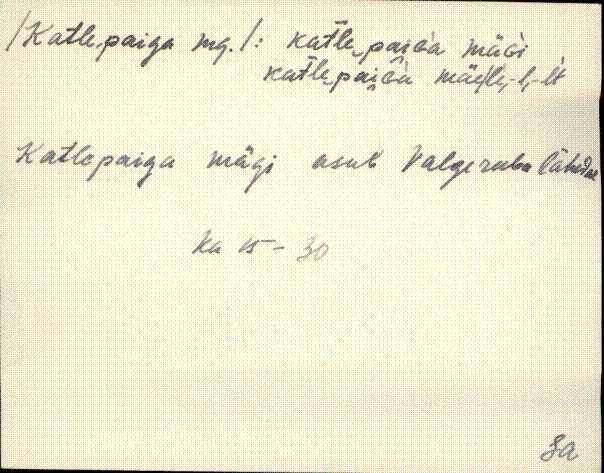 /Katlepaiga mg./: kat̀le paiGa mäGi
kat̀le paiGa mäe/le,-l,-lt
Katlepaiga mägi asub Valgeraba lähedal